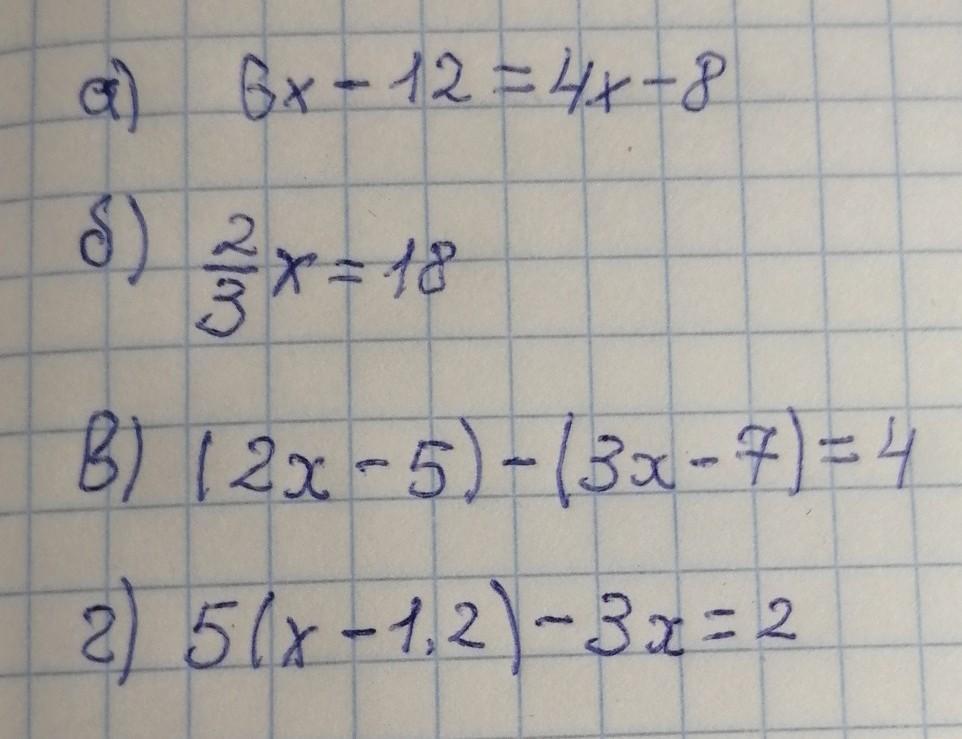 а) 6x - 12 = 4x - 8
б) 2/3 x = 18
в) (2x - 5) - (3x - 7) = 4
г) 5(x - 1,2) - 3x = 2